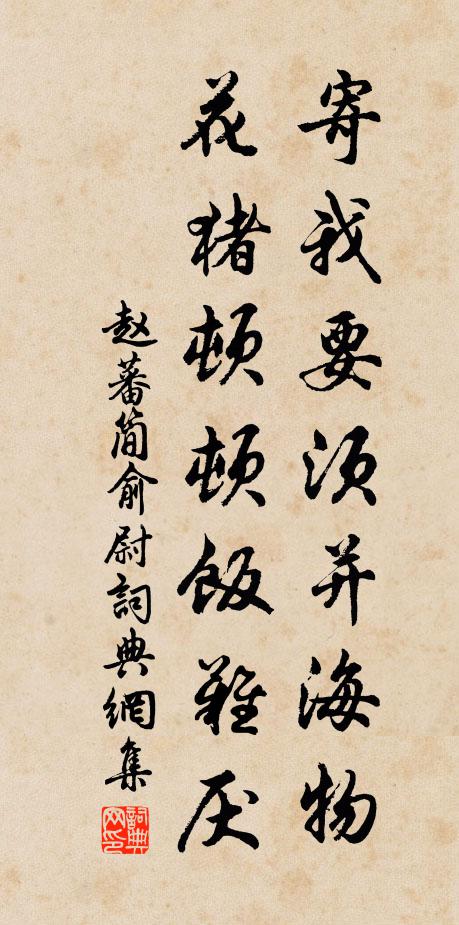 寄我要须并海物
花猪顿顿饭难厌
赵蕃简俞尉詞典網集
詞典网印